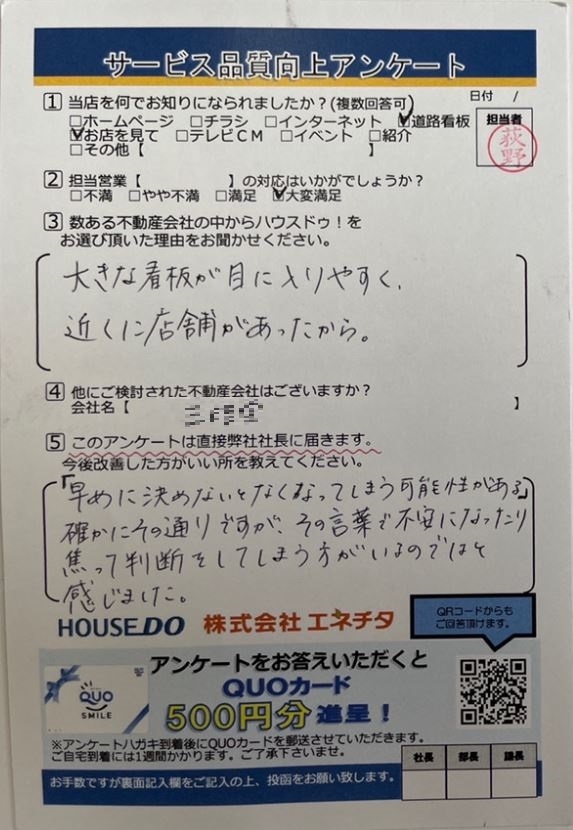 サービス品質向上アンケート
日付　/
担当者
荻野
1 当店を何でお知りになられましたか？(複数回答可)
□ホームページ　□チラシ　□インターネット　☑道路看板
☑お店を見て　□テレビＣＭ　□イベント　□紹介
□その他【　　　】
2 担当営業【　　　】の対応はいかがでしょうか？
□不満　□やや不満　□満足　☑大変満足
3 数ある不動産会社の中からハウスドゥ！を
お選び頂いた理由をお聞かせください。
大きな看板が目に入りやすく、
近くに店舗があったから。
4 他にご検討された不動産会社はございますか？
会社名【　　　】
5 このアンケートは直接弊社社長に届きます。
今後改善した方がいい所を教えてください。
「早めに決めないとなくなってしまう可能性がある」
確かにその通りですが、その言葉で不安になったり
焦って判断をしてしまう方がいるのではと
感じました。
HOUSEDO 株式会社 エネチタ
QRコードからも
ご回答頂けます。
アンケートをお答えいただくと
QUOカード
500円分 進呈！
QUO
SMILE
※アンケートハガキ到着後にQUOカードを郵送させていただきます。
ご自宅到着には1週間かかります。ご了承下さいませ。
社長　部長　課長
お手数ですが裏面記入欄をご記入の上、投函をお願い致します。